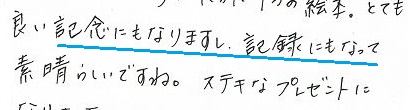 の絵本。とても
良い記念にもなりますし、記録にもなって
素晴らしいですね。ステキなプレゼントに